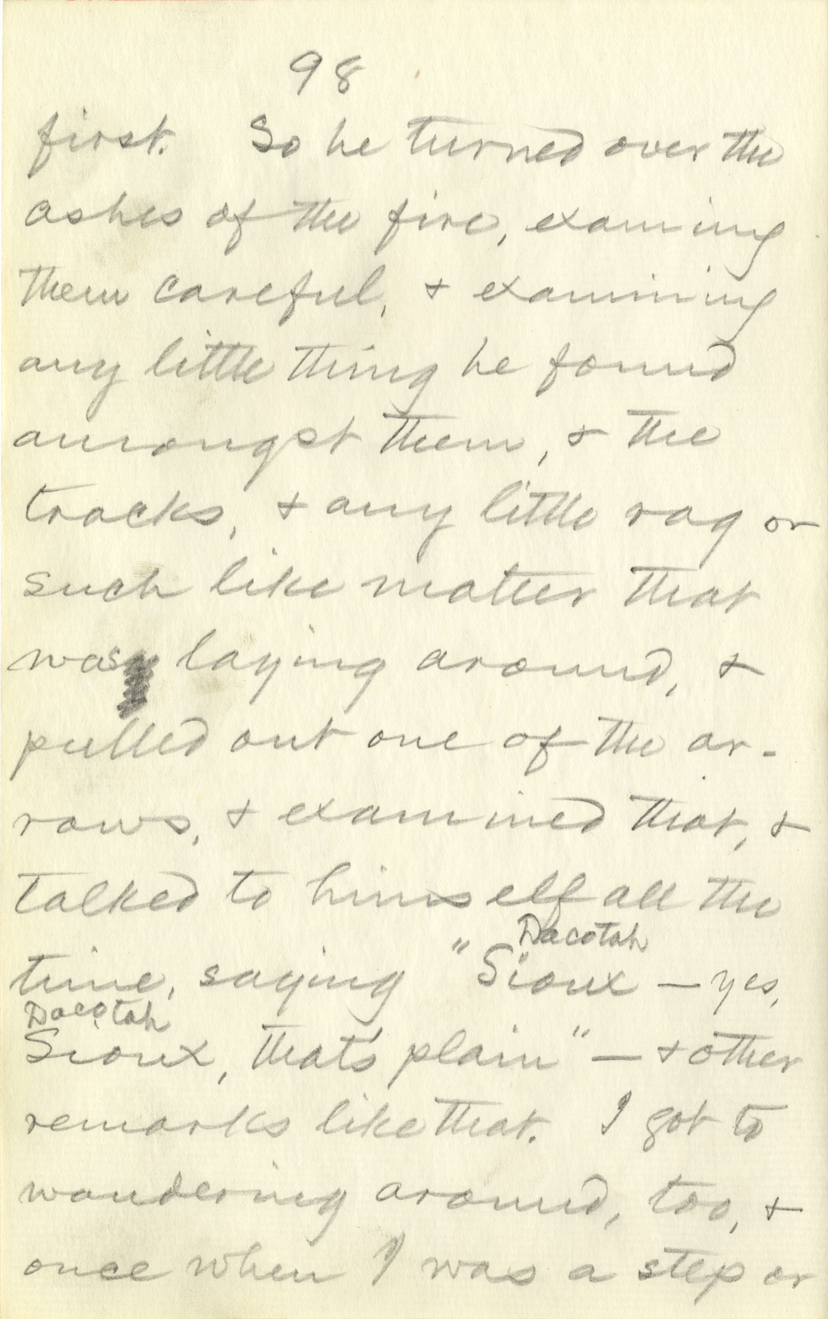 98
first. So he turned over the
ashes of the fire, examining
them careful, & examining
any little thing he found
amongst them, & the
tracks, & any little rag or
such like matter that
was laying around, &
pulled out one of the ar-
rows, & examined that, &
talked to himself all the
Dacotah
time, saying "Sioux — yes,
Dacotah
Sioux, that's plain" — & other
remarks like that. I got to
wandering around, too, &
once when I was a step or